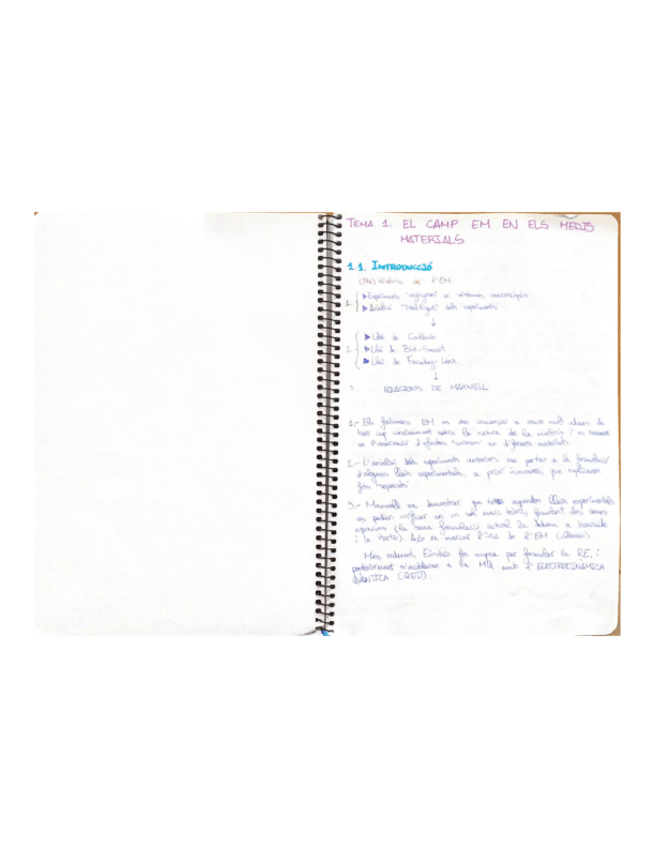 TEMA 1. EL CAMP EM EN ELS MEDIS
MATERIALS
1.1. INTRODUCCIÓ
(Pre) Història de l'EM.
1. ▶ Experiments en sistemes macroscòpics
▶ Anàlisi dels experiments
↓
2. ▶ Llei de Coulomb
▶ Llei de Biot-Savart
▶ Llei de Faraday-Lenz
↓
3. EQUACIONS DE MAXWELL
1.- Els fenòmens EM es van començar a veure molt abans de
tenir cap coneixement sobre la natura de la matèria i es basaven
en l'observació d'efectes "curiosos" en diferents materials
2.- L'anàlisi dels experiments anteriors van portar a la formulació
d'algunes lleis experimentals, a priori inconnexes, que explicaven
fets "separats"
3.- Maxwell va demostrar que totes aquestes lleis experimentals
es podien unificar en un sol marc teòric, plantejant les seves
equacions (la seva formulació actual la devem a Heaviside
i a Hertz). Això va marcar l'inici de l'EM (clàssica).
Més endavant, Einstein les empra per formular la RE, i
posteriorment s'acoblaran a la MQ amb l'ELECTRODINÀMICA
QUÀNTICA (QED)